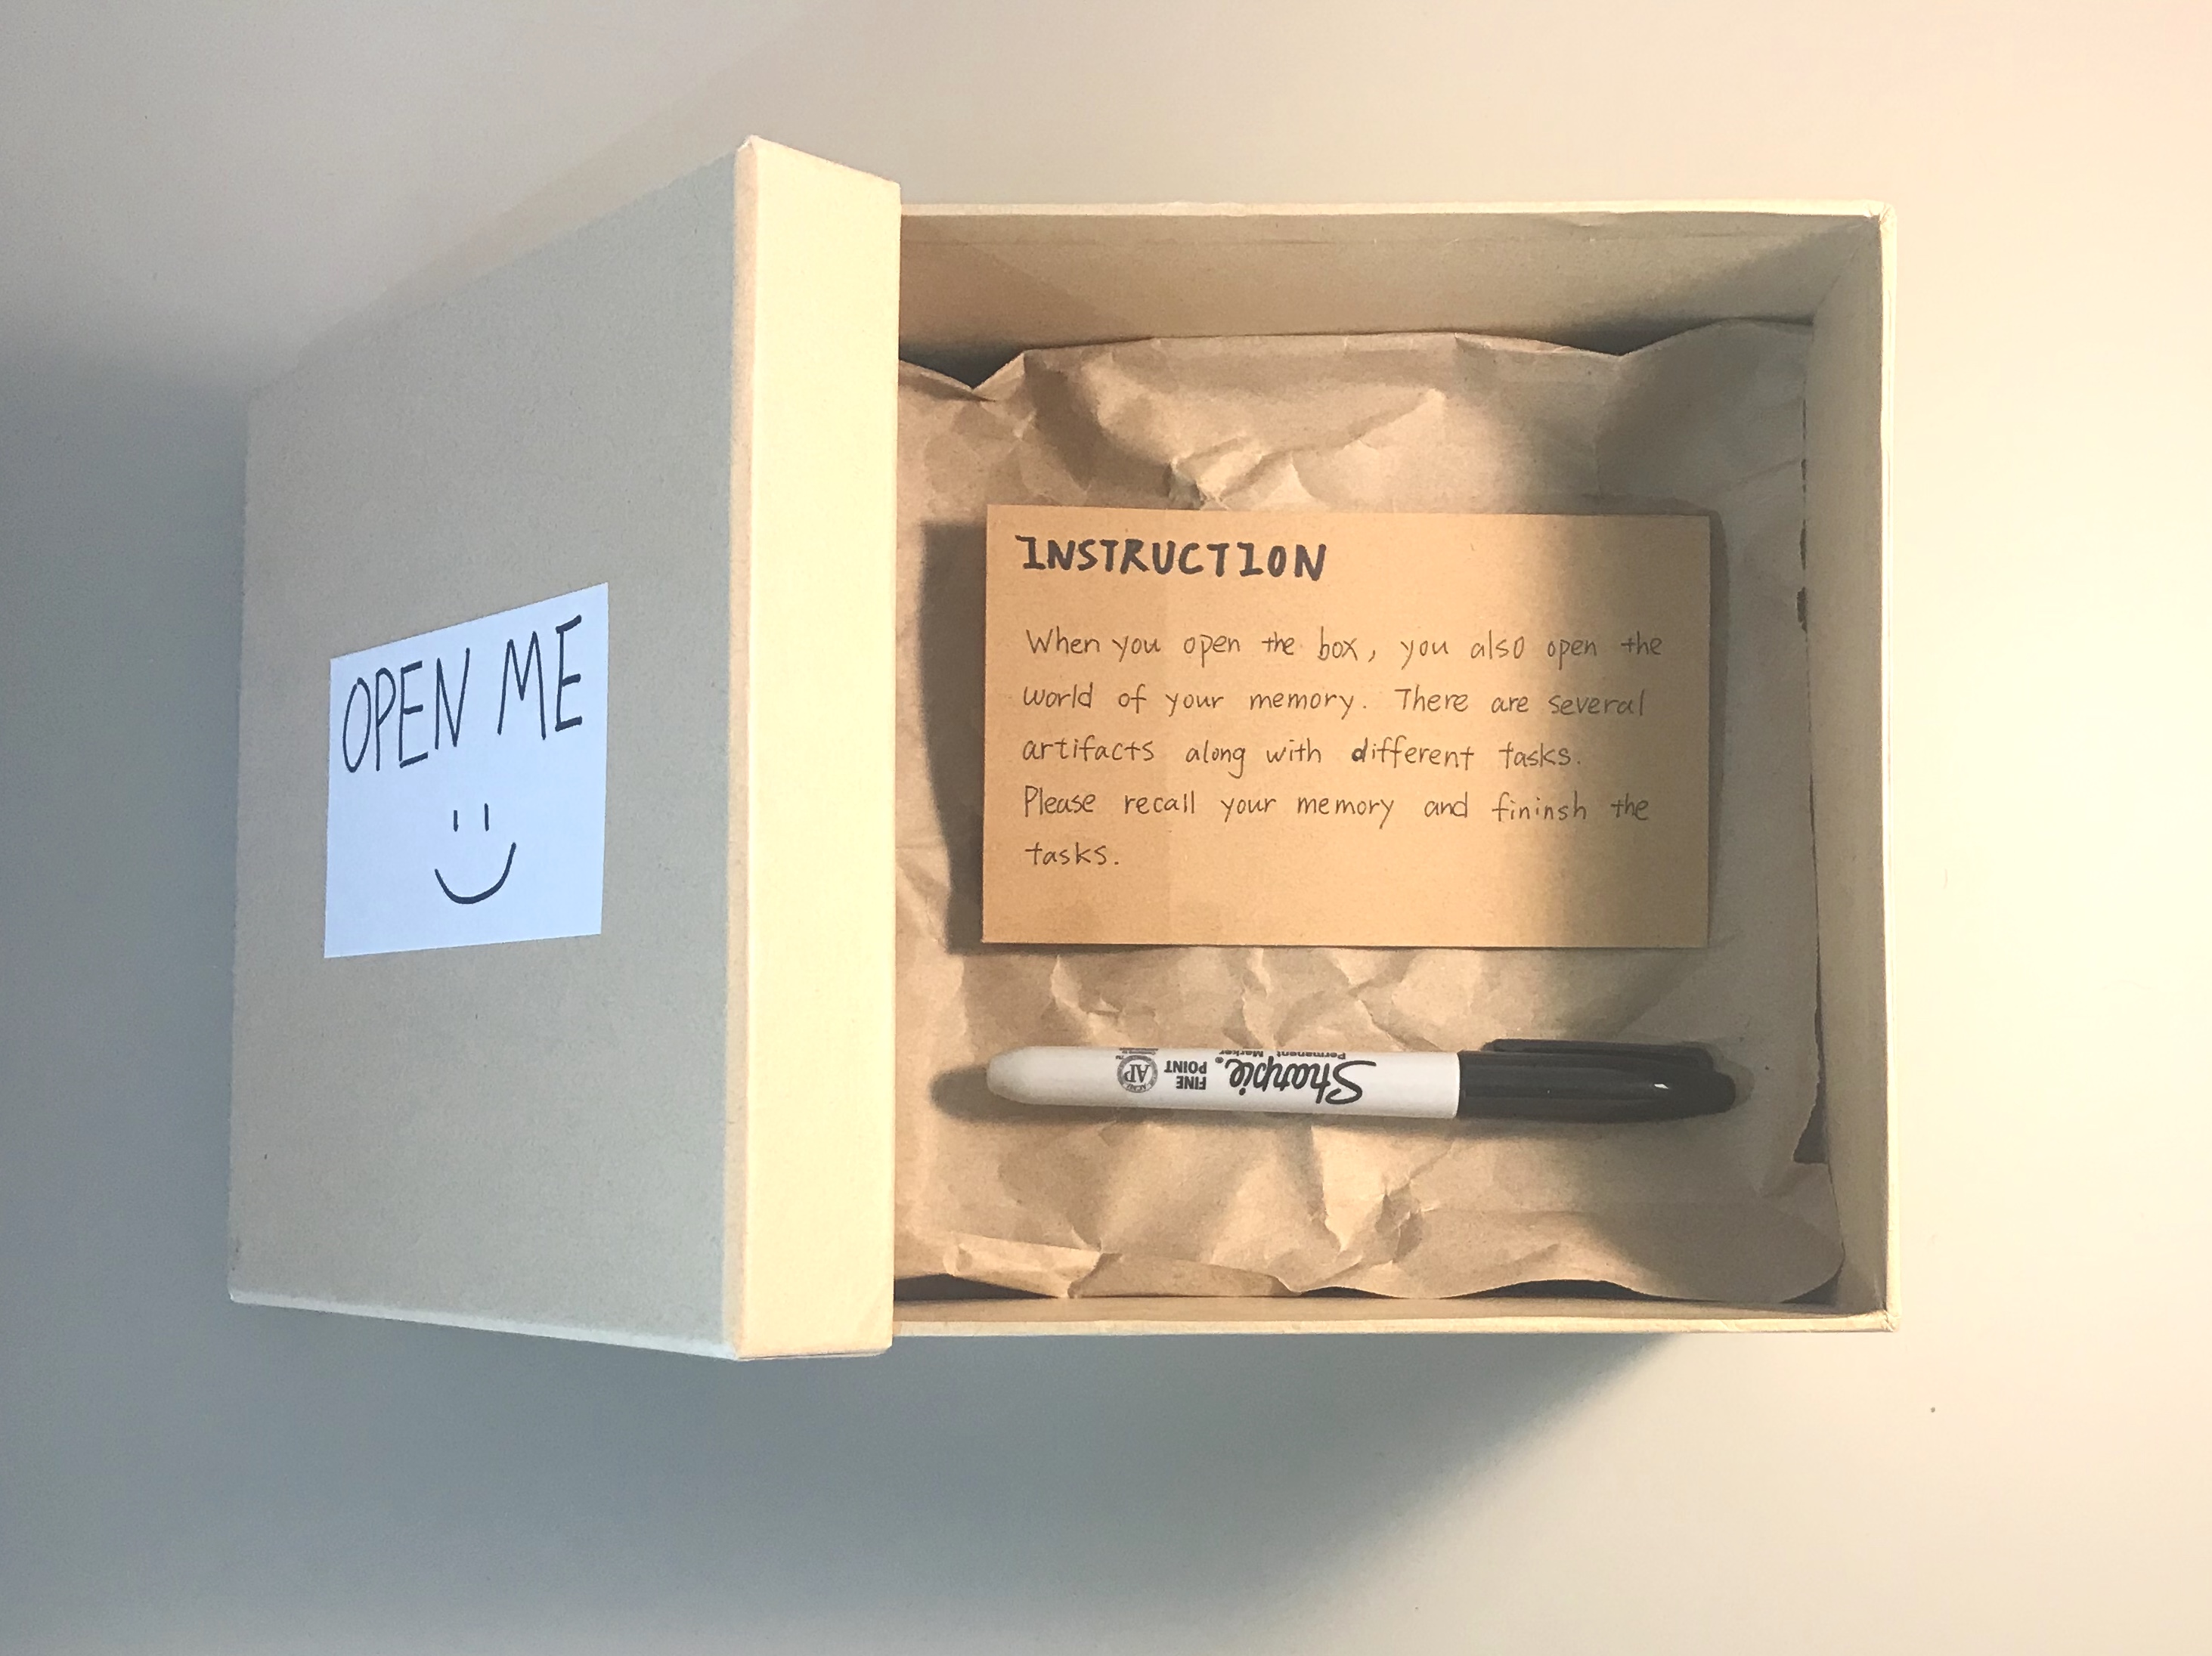 OPEN ME
INSTRUCTION
When you open the box, you also open the
world of your memory. There are several
artifacts along with different tasks.
Please recall your memory and fininsh the
tasks.
Sharpie.
Permanent Marker
FINE
POINT
AP